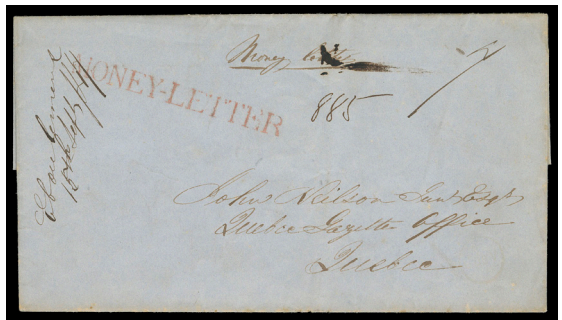 Money letter
MONEY-LETTER
885
15th Sept
John Neilson Junr Esqr
Quebec Gazette Office
Quebec